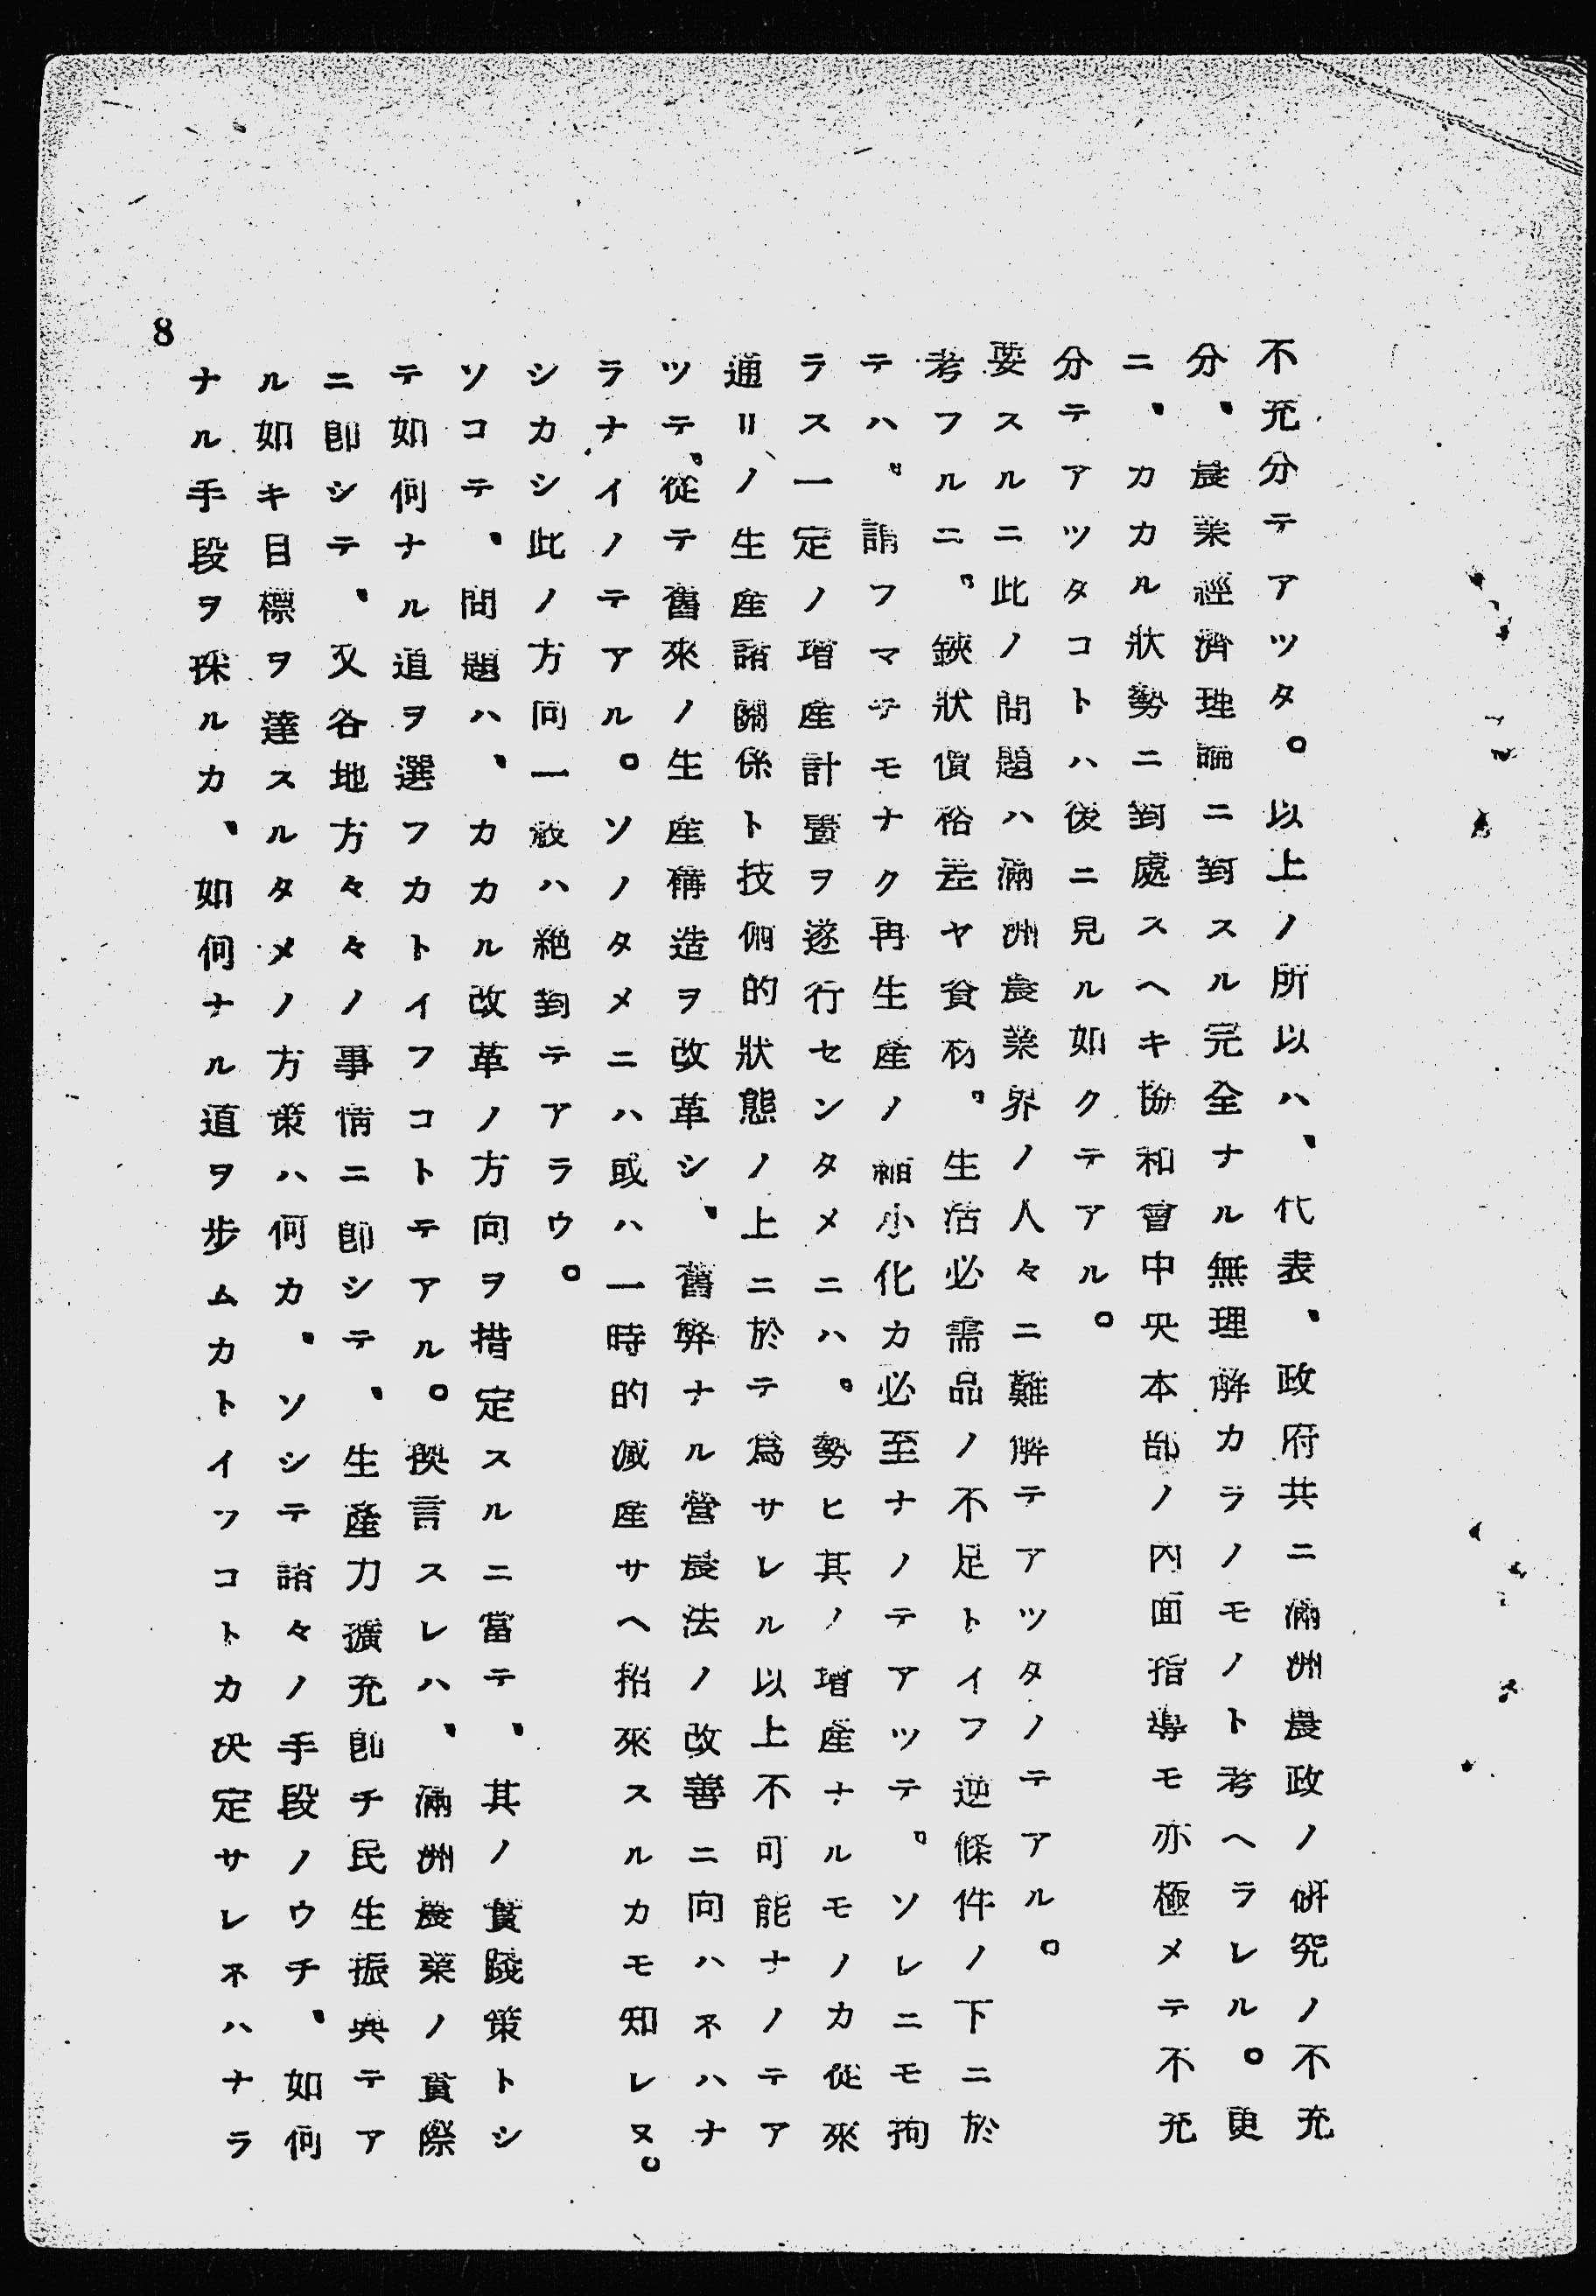 不充分テアツタ。以上ノ所以ハ、代表、政府共ニ滿洲農政ノ研究ノ不充
分、農業經濟理論ニ對スル完全ナル無理解カラノモノト考ヘラレル。更
ニ、カカル狀勢ニ對處スヘキ協和會中央本部ノ內面指導モ亦極メテ不充
分テアツタコトハ後ニ見ル如クテアル。
要スルニ此ノ問題ハ滿洲農業界ノ人々ニ難解テアツタノテアル。
考フルニ、鋏狀價格差ヤ資材、生活必需品ノ不足トイフ逆條件ノ下ニ於
テハ、謂フマテモナク再生產ノ縮小化カ必至ナノテアツテ、ソレニモ拘
ラス一定ノ增產計畫ヲ遂行センタメニハ、勢ヒ其ノ增產ナルモノカ從來
通リノ生產諸關係ト技術的狀態ノ上ニ於テ爲サレル以上不可能ナノテア
ツテ、從テ舊來ノ生產構造ヲ改革シ、舊弊ナル營農法ノ改善ニ向ハネハナ
ラナイノテアル。ソノタメニハ或ハ一時的減產サヘ招來スルカモ知レヌ。
シカシ此ノ方向一般ハ絕對テアラウ。
ソコテ、問題ハ、カカル改革ノ方向ヲ措定スルニ當テ、其ノ實踐策トシ
テ如何ナル道ヲ選フカトイフコトテアル。換言スレハ、滿洲農業ノ實際
ニ卽シテ、又各地方々々ノ事情ニ卽シテ、生產力擴充卽チ民生振興テア
ル如キ目標ヲ達スルタメノ方策ハ何カ、ソシテ諸々ノ手段ノウチ、如何
ナル手段ヲ採ルカ、如何ナル道ヲ步ムカトイフコトカ決定サレネハナラ
8